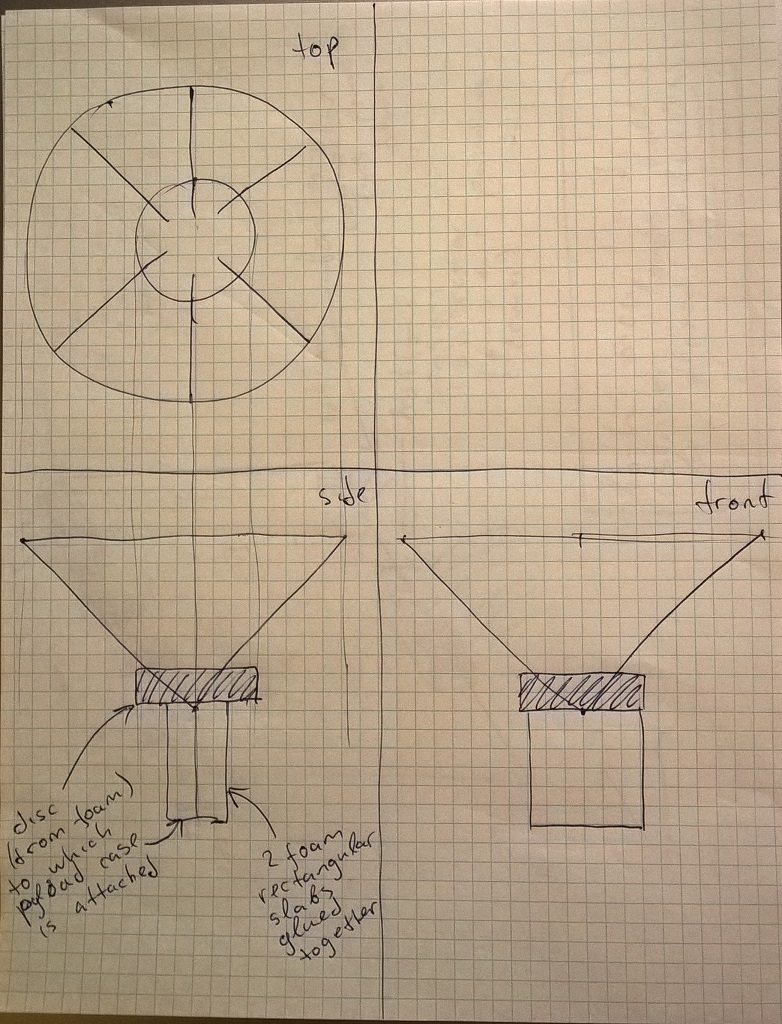 top
side
front
disc
(from foam)
to which
payload case
is attached
2 foam
rectangular
slabs
glued
together